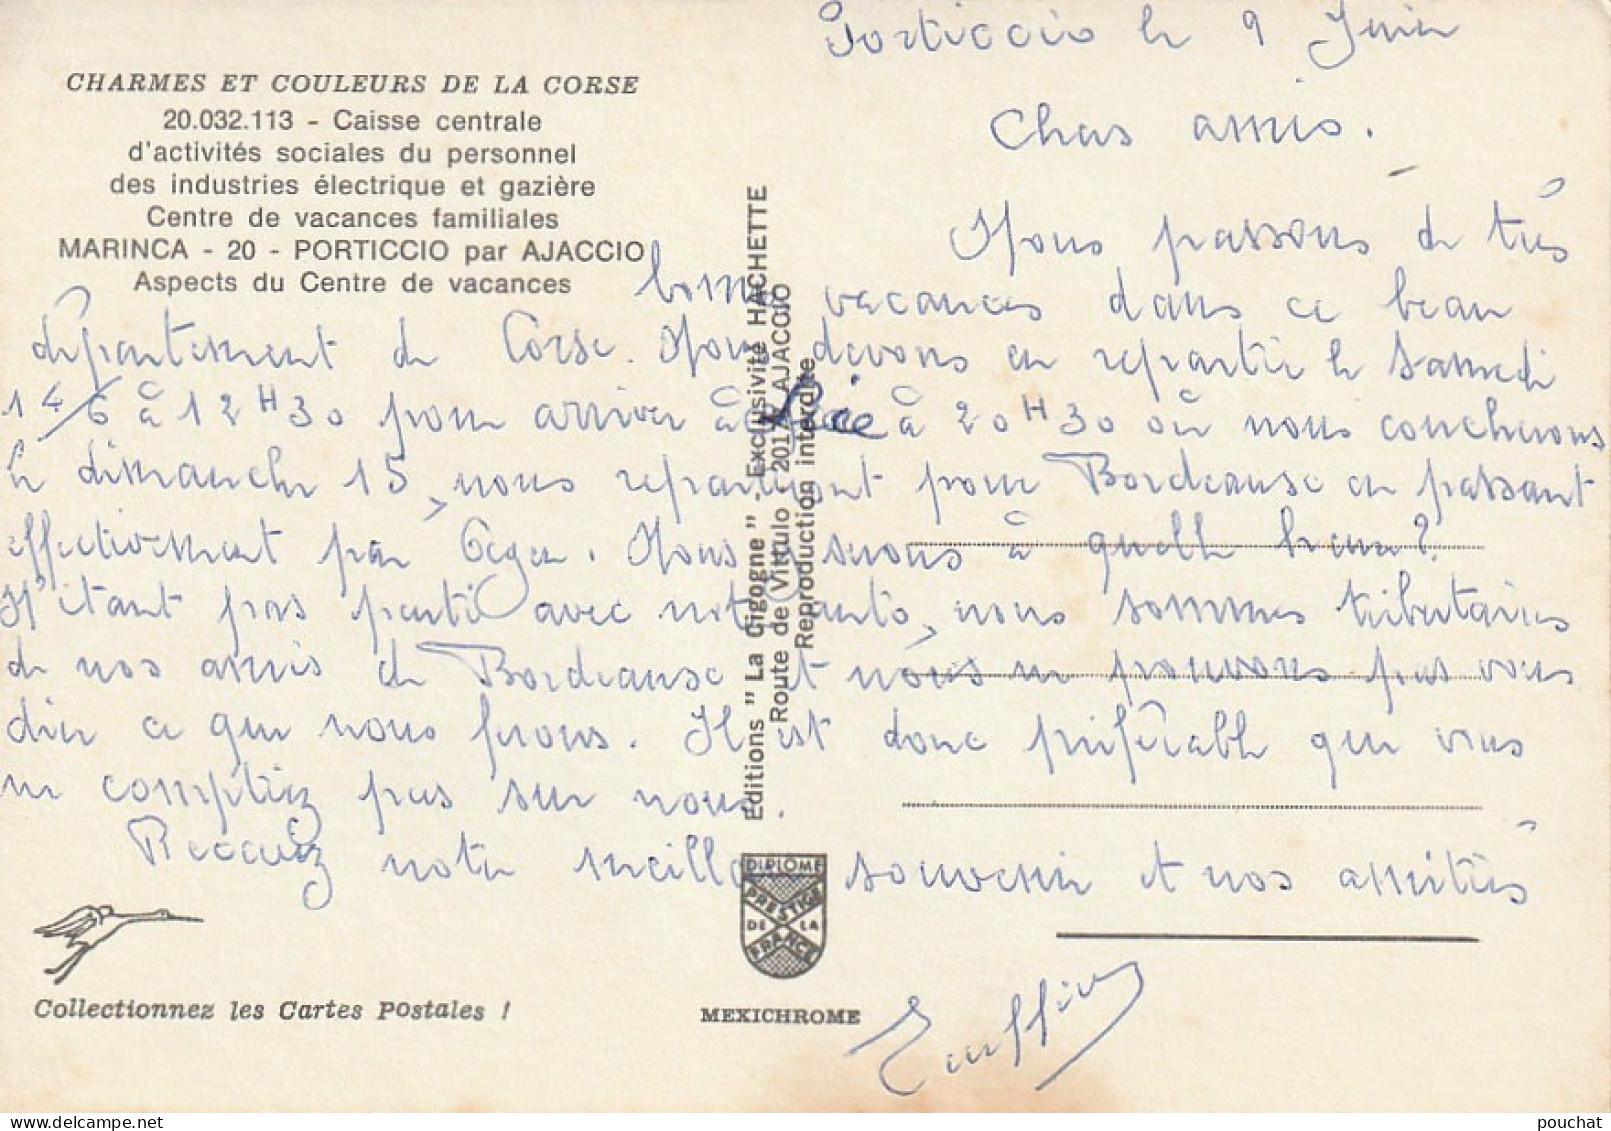 CHARMES ET COULEURS DE LA CORSE
20.032.113 - Caisse centrale
d'activités sociales du personnel
des industries électrique et gazière
Centre de vacances familiales
MARINCA - 20 - PORTICCIO par AJACCIO
Aspects du Centre de vacances
Porticcio le 9 Juin
Chers amis.
Nous passons de très
bonnes vacances dans ce beau
département de Corse. Nous devons en repartir le Samedi
14/6 à 12H30 pour arriver à à 20H30 où nous coucherons
le dimanche 15, nous repartirons pour Bordeaux en passant
effectivement par Gagen. Nous à quelle heure?
N'étant pas parti avec notre auto, nous sommes tributaires
de nos amis de Bordeaux et nous ne pouvons pas vous
dire ce que nous ferons. Il est donc préférable que vous
ne comptiez pas sur nous.
Recevez notre meilleur souvenir et nos amitiés
Editions "La Cigogne", Exclusivité HACHETTE
Route de Vittulo - 201 AJACCIO
Reproduction interdite
DIPLOME
PRESTIGE
DE LA
FRANCE
Collectionnez les Cartes Postales !
MEXICHROME
pouchat